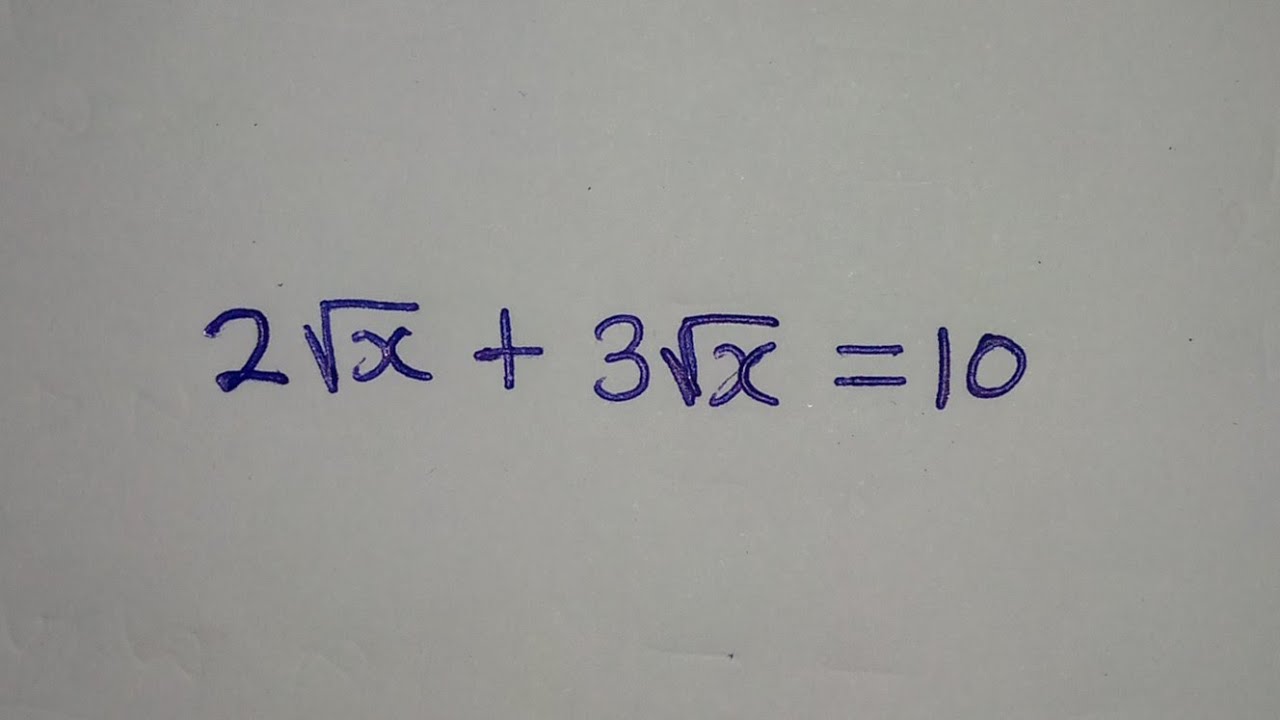 2√x + 3√x = 10